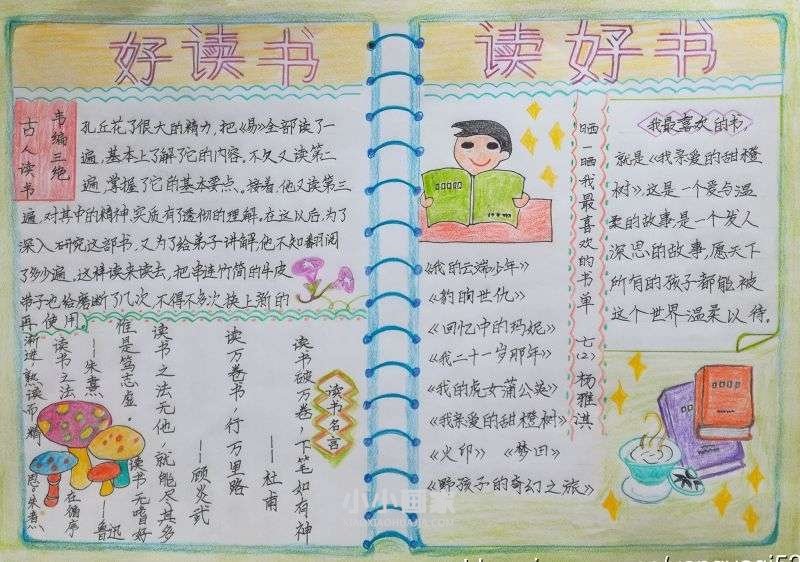 好读书
读好书
韦编三绝
古人读书
孔丘花了很大的精力,把《易》全部读了一
遍,基本上了解了它的内容,不久又读第二
遍,掌握了它的基本要点。接着,他又读第三
遍,对其中的精神、实质有了透彻的理解。在这以后,为了
深入研究这部书,又为了给弟子讲解,他不知翻阅
了多少遍。这样读来读去,把串连竹简的牛皮
带子也给磨断了几次,不得不多次换上新的
再使用。
读书名言
读书破万卷,下笔如有神
——杜甫
读万卷书,行万里路
——顾炎武
读书无嗜好
就能尽其多
——鲁迅
读书之法无他
惟是笃志虚
——朱熹
读书之法
在循序
渐进,熟读而精
思。朱熹
《我的云端少年》
《豹的世仇》
《回忆中的玛妮》
《我二十一岁那年》
《我的虎女蒲公英》
《我亲爱的甜橙树》
《火印》 《梦田》
《野孩子的奇幻之旅》
晒一晒我最喜欢的书单 七(2) 杨雅淇
我最喜欢的书,
就是《我亲爱的甜橙
树》,这是一个爱与温
柔的故事,是一个发人
深思的故事,愿天下
所有的孩子都能被
这个世界温柔以待。
小小画家
XIAOXIAOHUAJIA.COM